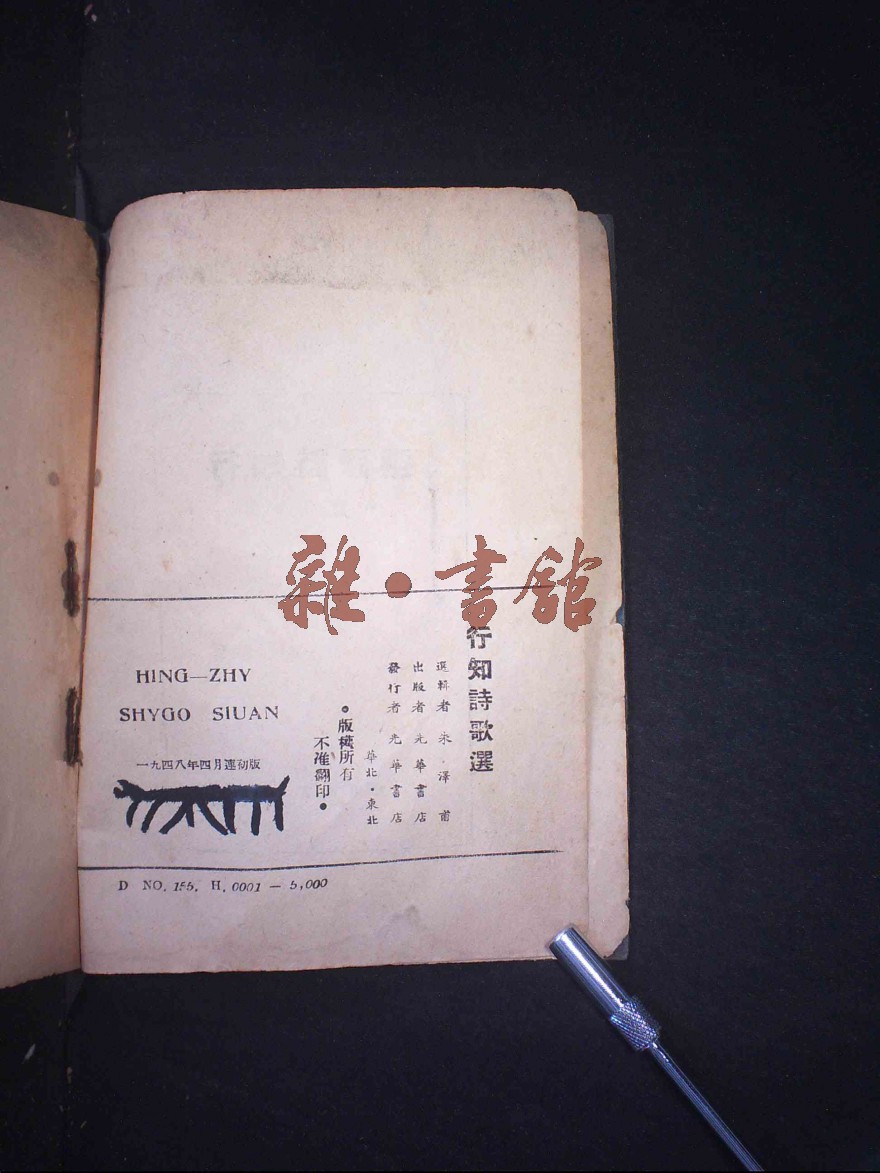 雜•書館
行知詩歌選
選輯者 朱·澤甫
出版者 光華書店
發行者 光華書店
華北·東北
•版權所有
不准翻印•
HING—ZHY
SHYGO SIUAN
一九四八年四月連初版
D NO. 155. H. 0001 — 5,000